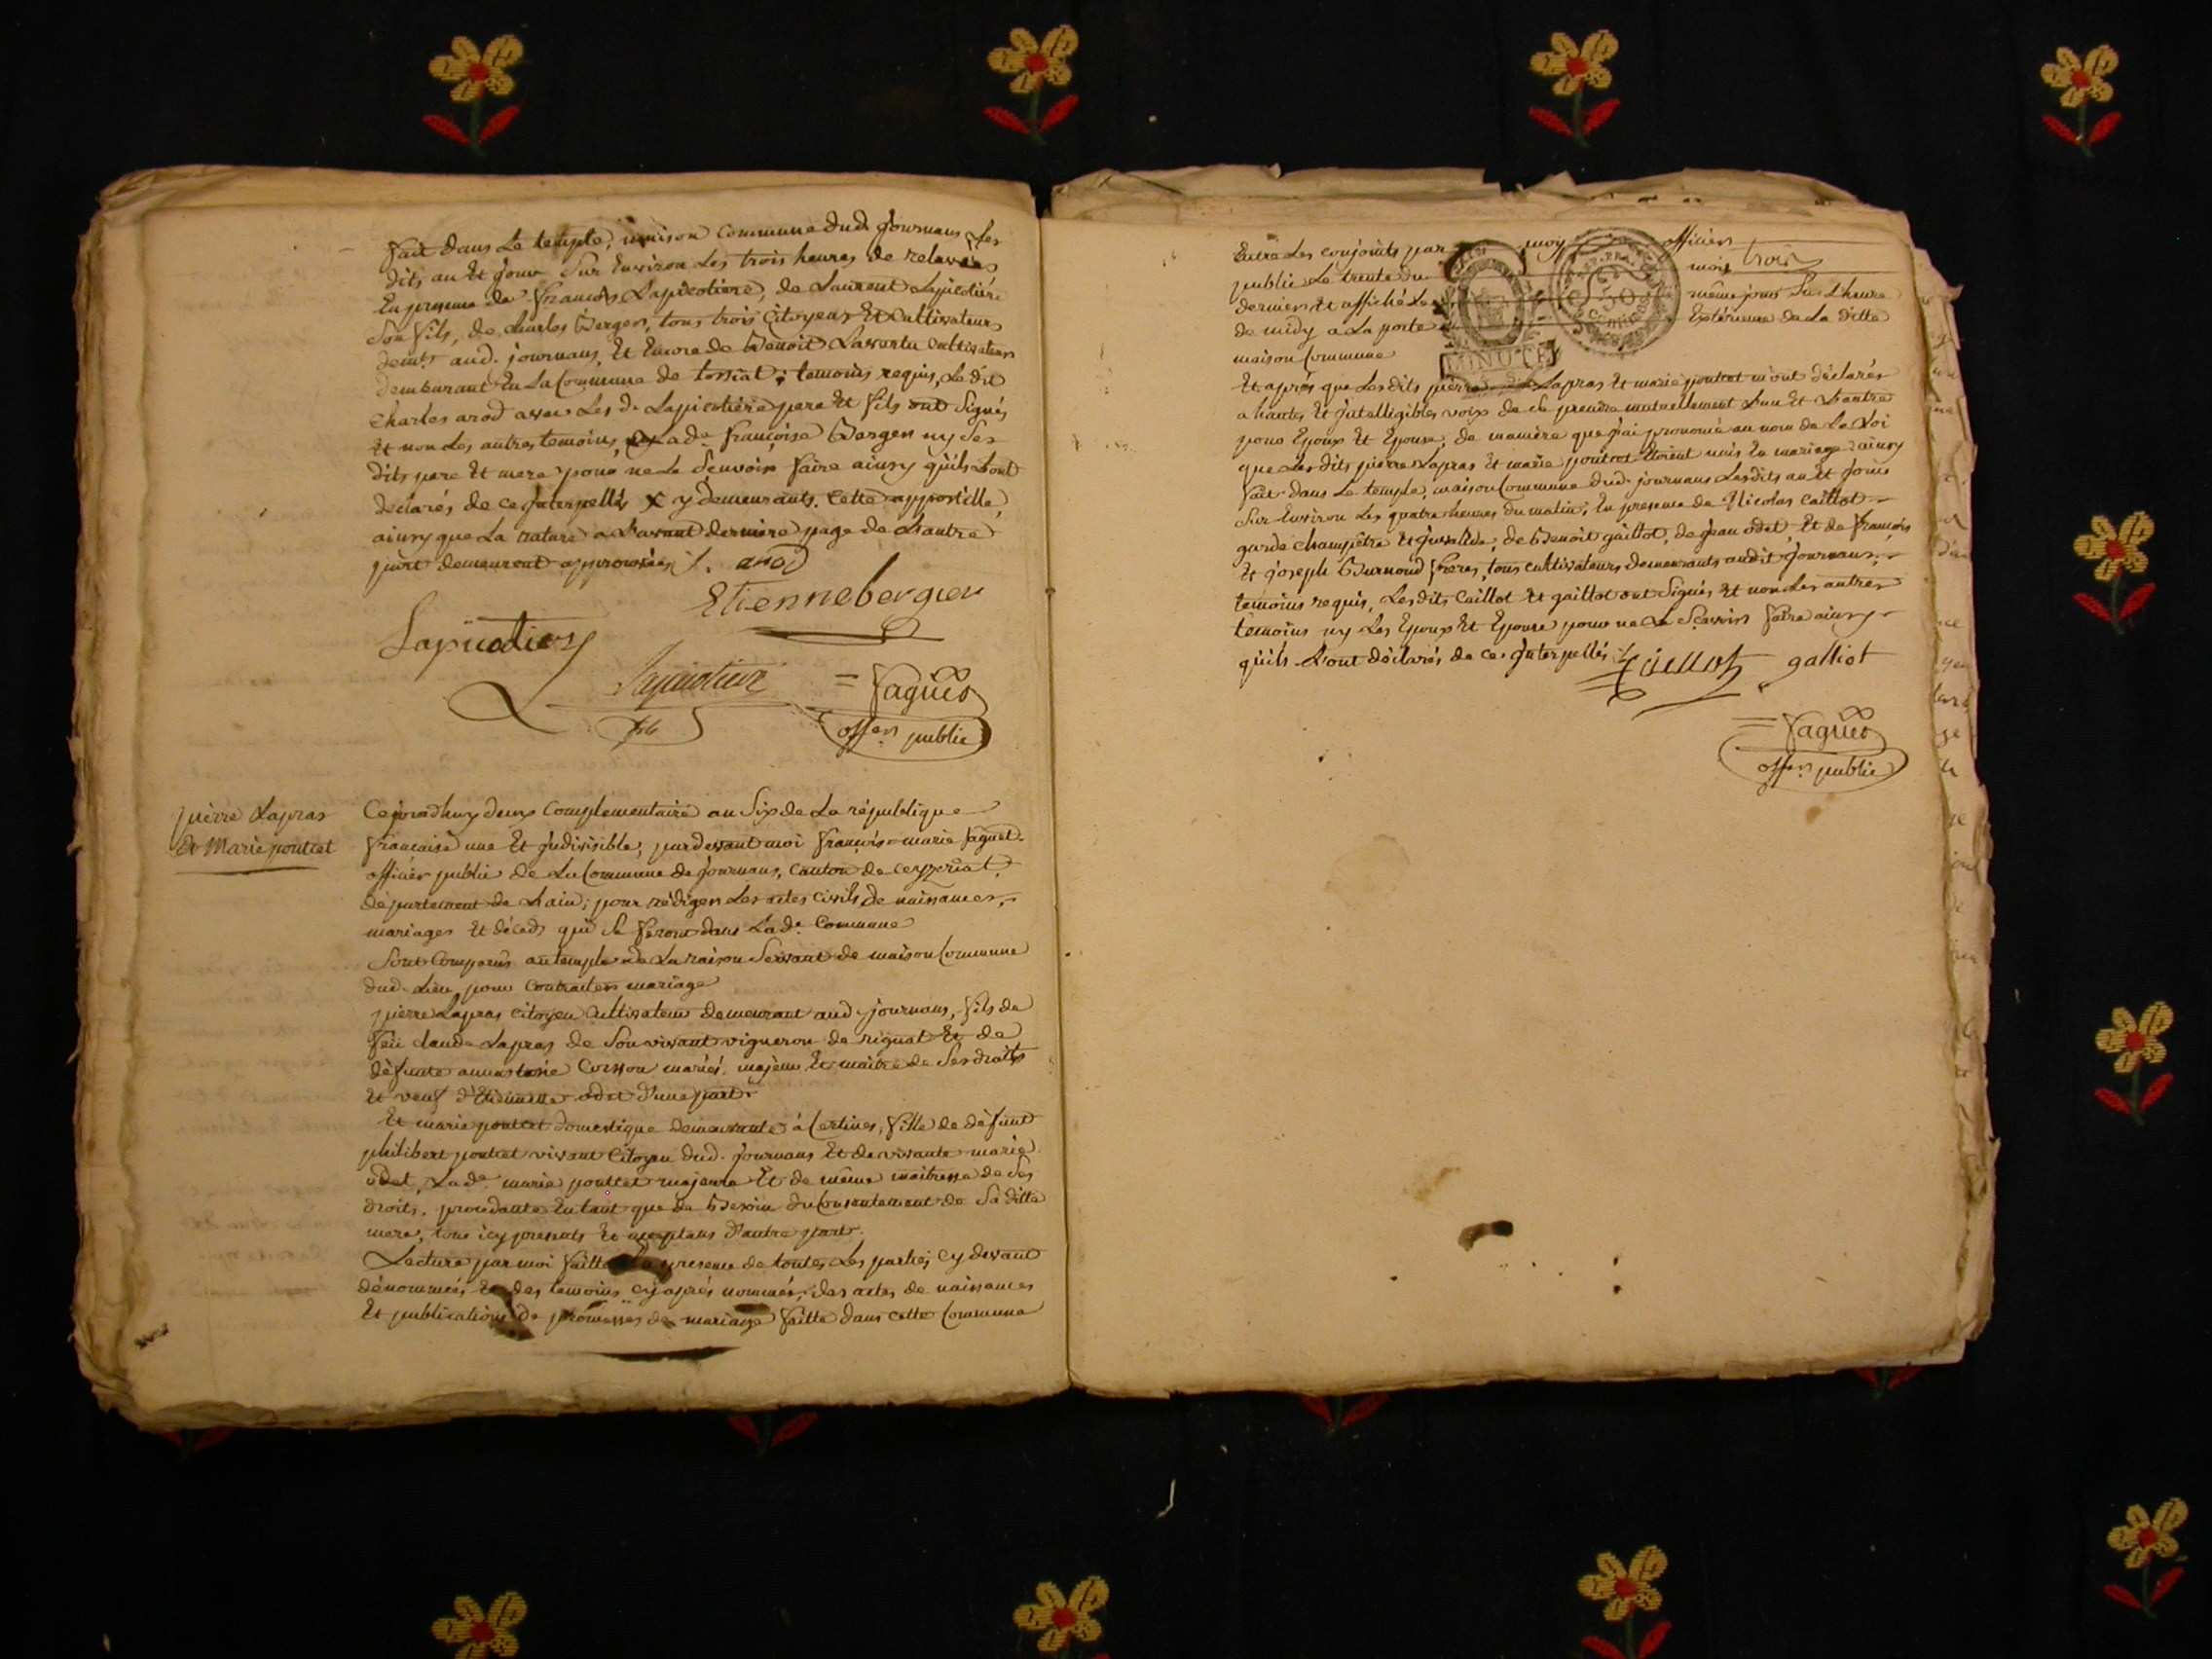 fait dans Le temple, maison Commune dud. Journans, Les
dits an Et Jour Sur Environ Les trois heures de relevées
En presence de françois Lapicotiere, de Laurent Lapicotiére
Son fils, de charles Berger, tous trois Citoyens Et Cultivateurs
demts. aud. journans, Et Encore de Benoit Cultivateur
demeurant En La Commune de tossiat; temoins requis, Le dit
Charles arod avec Les d. Lapicotiére pere Et fils ont Signés
Et non Les autres temoins, La de. françoise Berger ny Ses
dits pere Et mere pour ne Le Scavoir faire ainsy quils Lont
déclarés de ce Interpellés y demeurants. Cette appostille,
ainsy que La rature a Lavant derniere page de Lautre
part demeurent approuvées. arod
Etienne berger
Lapicotiery
Lapicotiere = faguet
fils
offer. public
pièrre Lapras
Et Marie pontret
Cejourdhuy deux Complementaire an Six de La république
francaise une Et Indivisible, pardevant moi françois=marie faguet
officier public de La Commune de Journans, Canton de Ceyzeriat,
département de Lain; pour rédiger Les actes Civils de naissances,
mariages Et déceds qui Se feront dans La de. Commune
Sont Comparus au temple de La raison Servant de maison Commune
dud. Lieu, pour Contracter mariage
pierre Lapras Citoyen Cultivateur demeurant aud. journans, fils de
feu claude Lapras de Son vivant vigneron de rignat Et de
défunte Corsson mariés, majeur Et maitre de Ses droits
Et veuf d'Etiennette odet D'une part
Et marie pontret domestique demeurante à Certines, fille de défunt
philibert pontret vivant Citoyen dud. Journans Et de vivante marie
odet, La de. marie pontret majeure Et de même maitresse de Ses
droits, procedante En tant que de Besoin du Consentement de Sa ditte
mere, tous icy presents Et acceptans D'autre part.
Lecture par moi faitte presence de toutes Les parties cy devant
dénommées Et des temoins cy après nommés, des actes de naissances
Et publications de promesses de mariage faitte dans cette Commune
Entre Les conjoints par moy officier
public Le trente du mois trois
dernier Et affiché Le même jour Sur L'heure
de midy a La porte Extérieure de La ditte
maison Commune
MINUTE
Et après que Lesdits pierre Lapras Et marie pontret m'ont déclarés
a hautes Et Intelligibles voix de Se prendre mutuellement L'un Et L'autre
pour Epoux Et Epouse, de manière que J'ai prononcé au nom de La Loi
que Lesdits pierre Lapras Et marie pontret Etoient unis En mariage: ainsy
fait dans Le temple, maison Commune dud. journans Lesdits an Et Jour
Sur Environ Les quatre heures du matin, En presence de Nicolas Caillot
garde champêtre Et Invalide, de Benoit gaillot, de Jean odet, Et de françois
Et Joseph Burnoud freres, tous cultivateurs demeurants audit Journans,
temoins requis, Lesdits Caillot Et gaillot ont Signés Et non Les autres
temoins ny Les Epoux Et Epouse pour ne Le Scavoir faire ainsy
qu'ils L'ont déclarés de ce Interpellés Caillot galliot
= faguet
offer. public